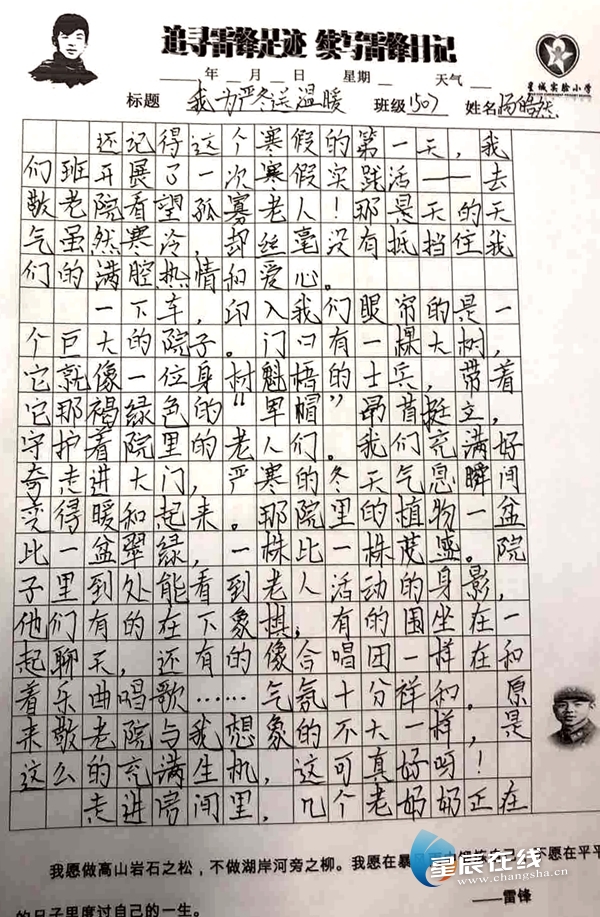 追寻雷锋足迹 续写雷锋日记
星城实验小学
____年__月__日 星期__ 天气__
标题 我为严冬送温暖 班级1507 姓名杨皓然
还记得这个寒假的第一天，我
们班开展了一次寒假实践活——去
敬老院看望孤寡老人！那是天的天
气虽然寒冷，却丝毫没有抵挡住我
们的满腔热情和爱心。
一下车，印入我们眼帘的是一
个巨大的院子。门口有一棵大树，
它就像一位身材魁梧的士兵，带着
它那褐绿色的“军帽”昂首挺立，
守护着院里的老人们。我们充满好
奇走进大门，严寒的冬天气息瞬间
变得暖和起来。那院里的植物一盆
比一盆翠绿，一株比一株茂盛。院
子里到处能看到老人活动的身影，
他们有的在下象棋，有的围坐在一
起聊天，还有的像合唱团一样在和
着乐曲唱歌……气氛十分祥和。原
来敬老院与我想象的不大一样，是
这么的充满生机，这可真好呀！
走进房间里，几个老奶奶正在
我愿做高山岩石之松，不做湖岸河旁之柳。我愿在暴 不愿在平平
的日子里度过自己的一生。
——雷锋
星辰在线
www.changsha.cn